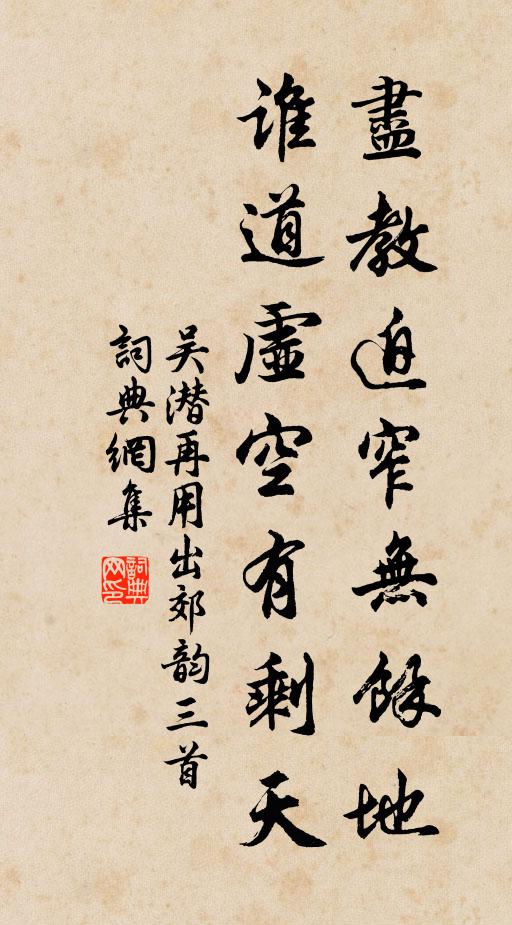 盡教迫窄無餘地
誰道虛空有剩天
吴潜再用出郊韵三首
詞典網集
詞典网印